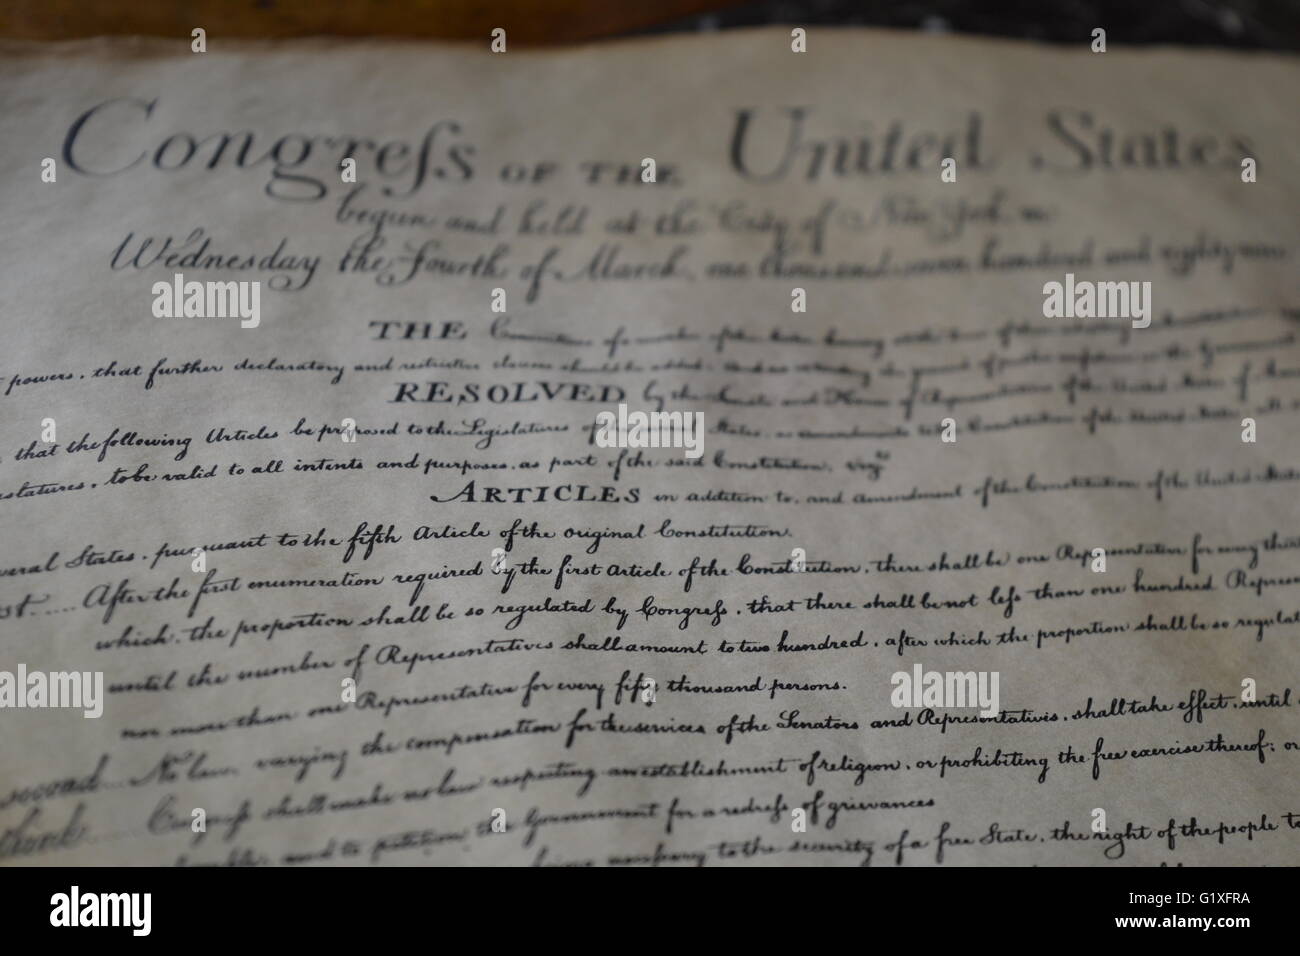 Congreſs OF THE United States
begun and held at the City of New York, on
Wednesday the Fourth of March, one thousand seven hundred and eighty nine
THE
powers, that further declaratory and restrictive clauses should be added
RESOLVED by the Senate and House of Representatives of the United States of
that the following Articles be proposed to the Legislatures of the several States, as amendments to the Constitution of the United States
to be valid to all intents and purposes, as part of the said Constitution, vizt
ARTICLES in addition to, and amendment of the Constitution of the United States
States, pursuant to the fifth Article of the original Constitution.
After the first enumeration required by the first Article of the Constitution, there shall be one Representative for every
which, the proportion shall be so regulated by Congreſs, that there shall be not leſs than one hundred
until the number of Representatives shall amount to two hundred, after which the proportion shall be so
nor more than one Representative for every fifty thousand persons.
second.... No law, varying the compensation for the services of the Senators and Representatives, shall take effect, until
Congreſs shall make no law respecting an establishment of religion, or prohibiting the free exercise thereof; or
and to petition the Government for a redreſs of grievances
being neceſsary to the security of a free State, the right of the people to
alamy
alamy
Image ID: G1XFRA
www.alamy.com